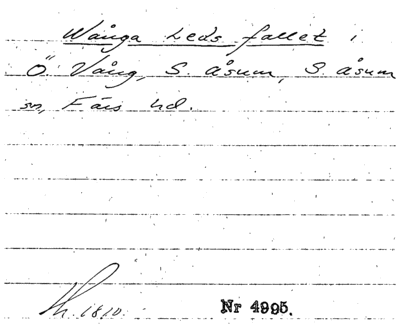 Wånga Leds fallet i
Ö. Vång, S. åsum, S. åsum
sn, Färs hd.
1810.
Nr 4995.